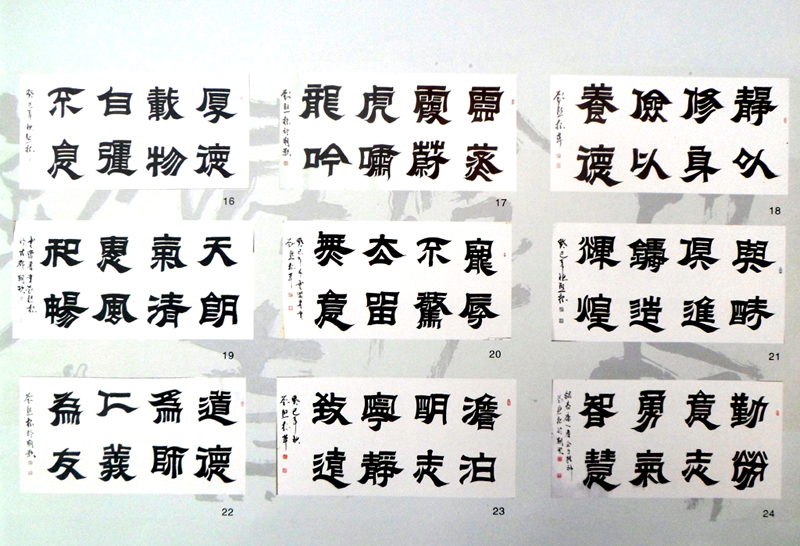 厚德
載物
自彊
不息
16
雲蒸
霞蔚
虎嘯
龍吟
17
靜以
修身
儉以
養德
18
天朗
氣清
惠風
和暢
19
寵辱
不驚
去留
無意
20
與時
俱進
鑄造
輝煌
21
道德
為師
仁義
為友
22
澹泊
明志
寧靜
致遠
癸巳年秋
23
勤勞
意志
勇氣
智慧
24